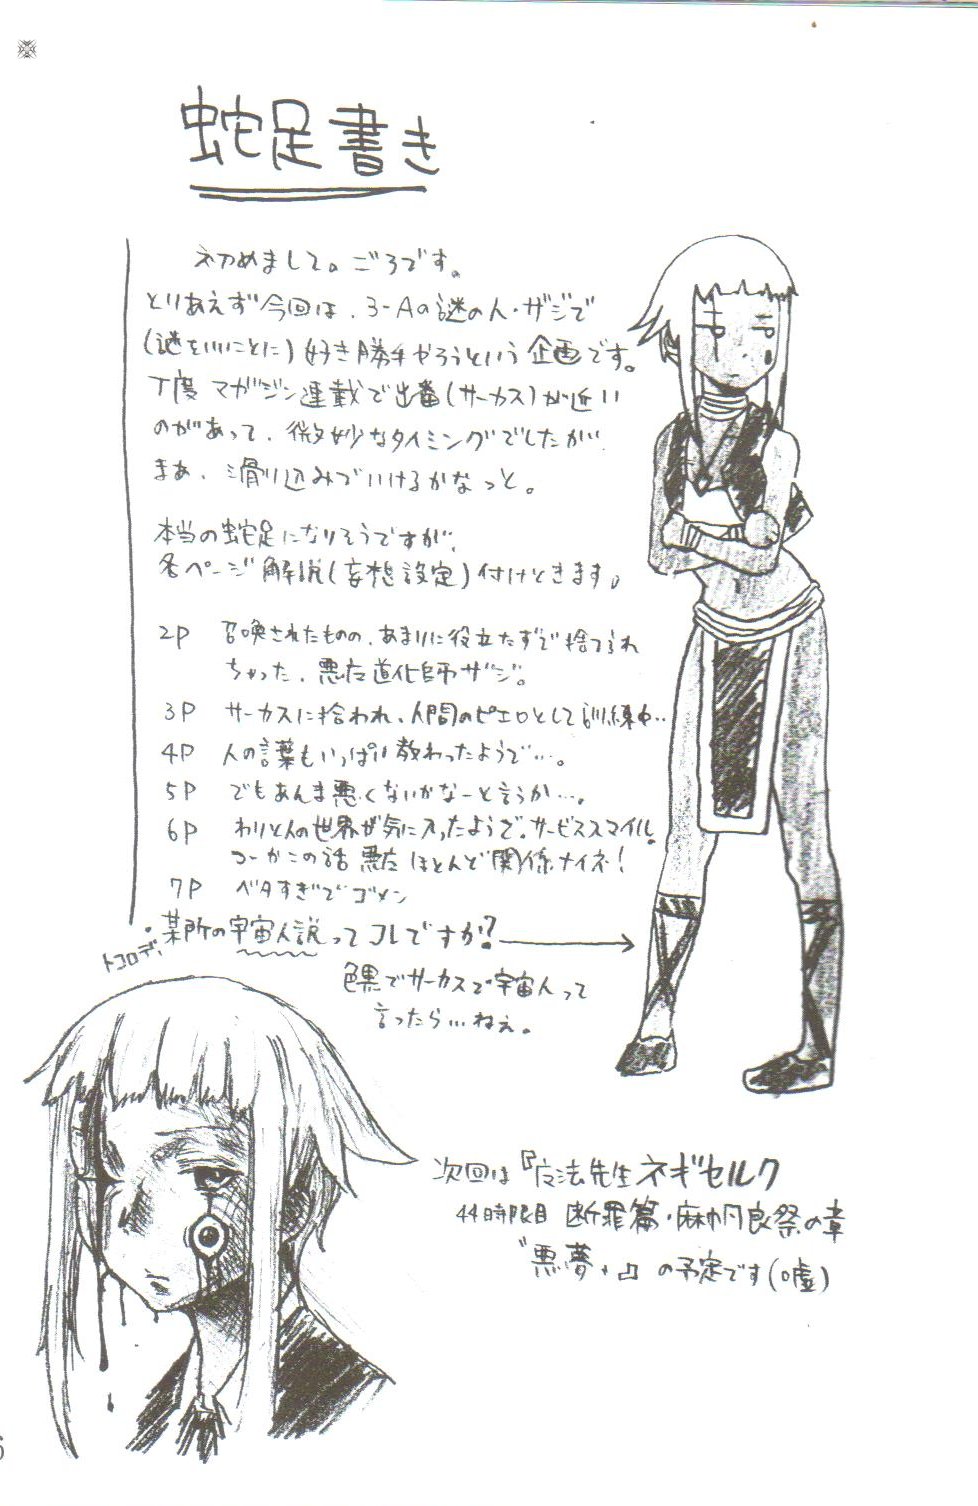 蛇足書き
初めまして。ごろです。
とりあえず今回は、3-Aの謎の人・ザジで
(謎をいいことに)好き勝手やろうという企画です。
丁度マガジン連載で出番(サーカス)が近い
のがあって、微妙なタイミングでしたが、
まあ、滑り込みでいけるかなっと。
本当の蛇足になりそうですが、
各ページ解説(妄想設定)付けときます。
2P 召喚されたものの、あまりに役立たずで捨てられ
ちゃった、悪魔道化師ザジ。
3P サーカスに拾われ、人間のピエロとして訓練中…
4P 人の言葉もいっぱい教わったようで…。
5P でもあんま悪くないかなーと言うか…。
6P わりと人の世界が気に入ったようで。サービススマイル。
つーかこの話 悪魔ほとんど関係ナイネ!
7P ベタすぎでゴメン
トコロデ、
・某所の宇宙人説ってコレですか?
色黒でサーカスで宇宙人って
言ったら…ねぇ。
次回は『魔法先生ネギセルク
44時限目 断罪篇・麻帆良祭の章
"悪夢"』の予定です(嘘)
6